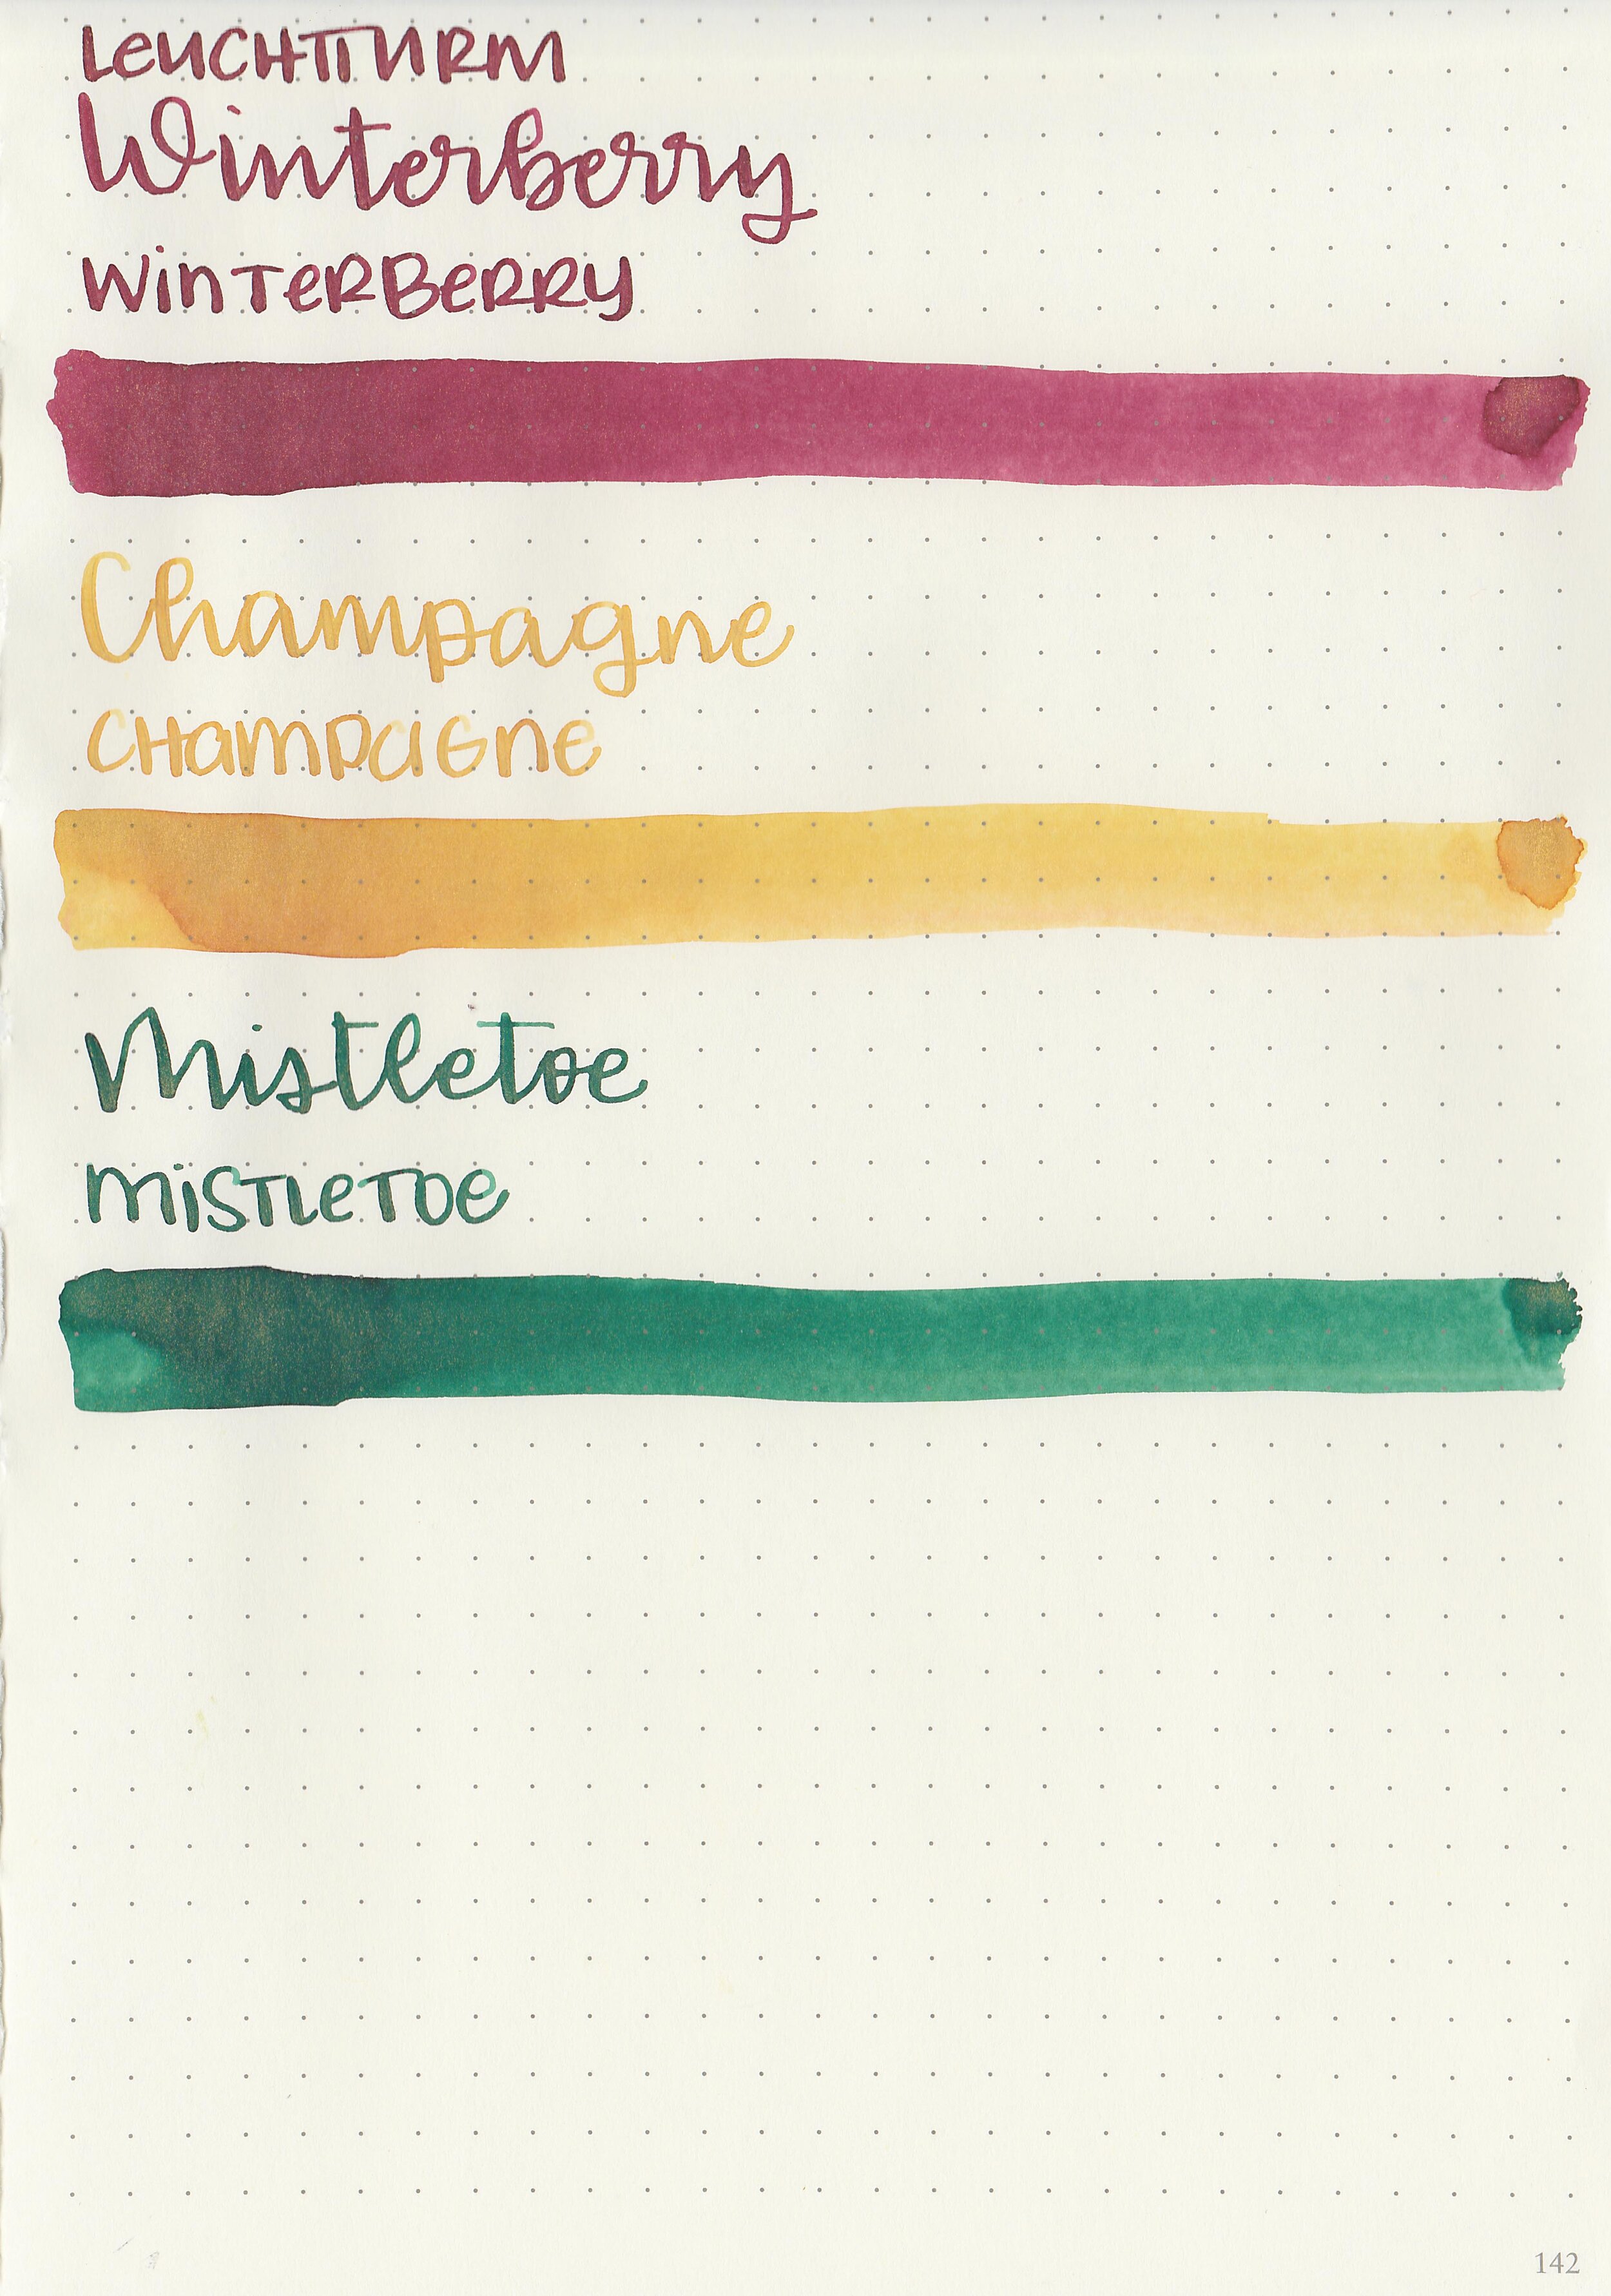 LeUCHTTURM
Winterberry
WinTeRBeRRY
Champagne
CHamPaGne
Mistletoe
miSTLeTOe
142